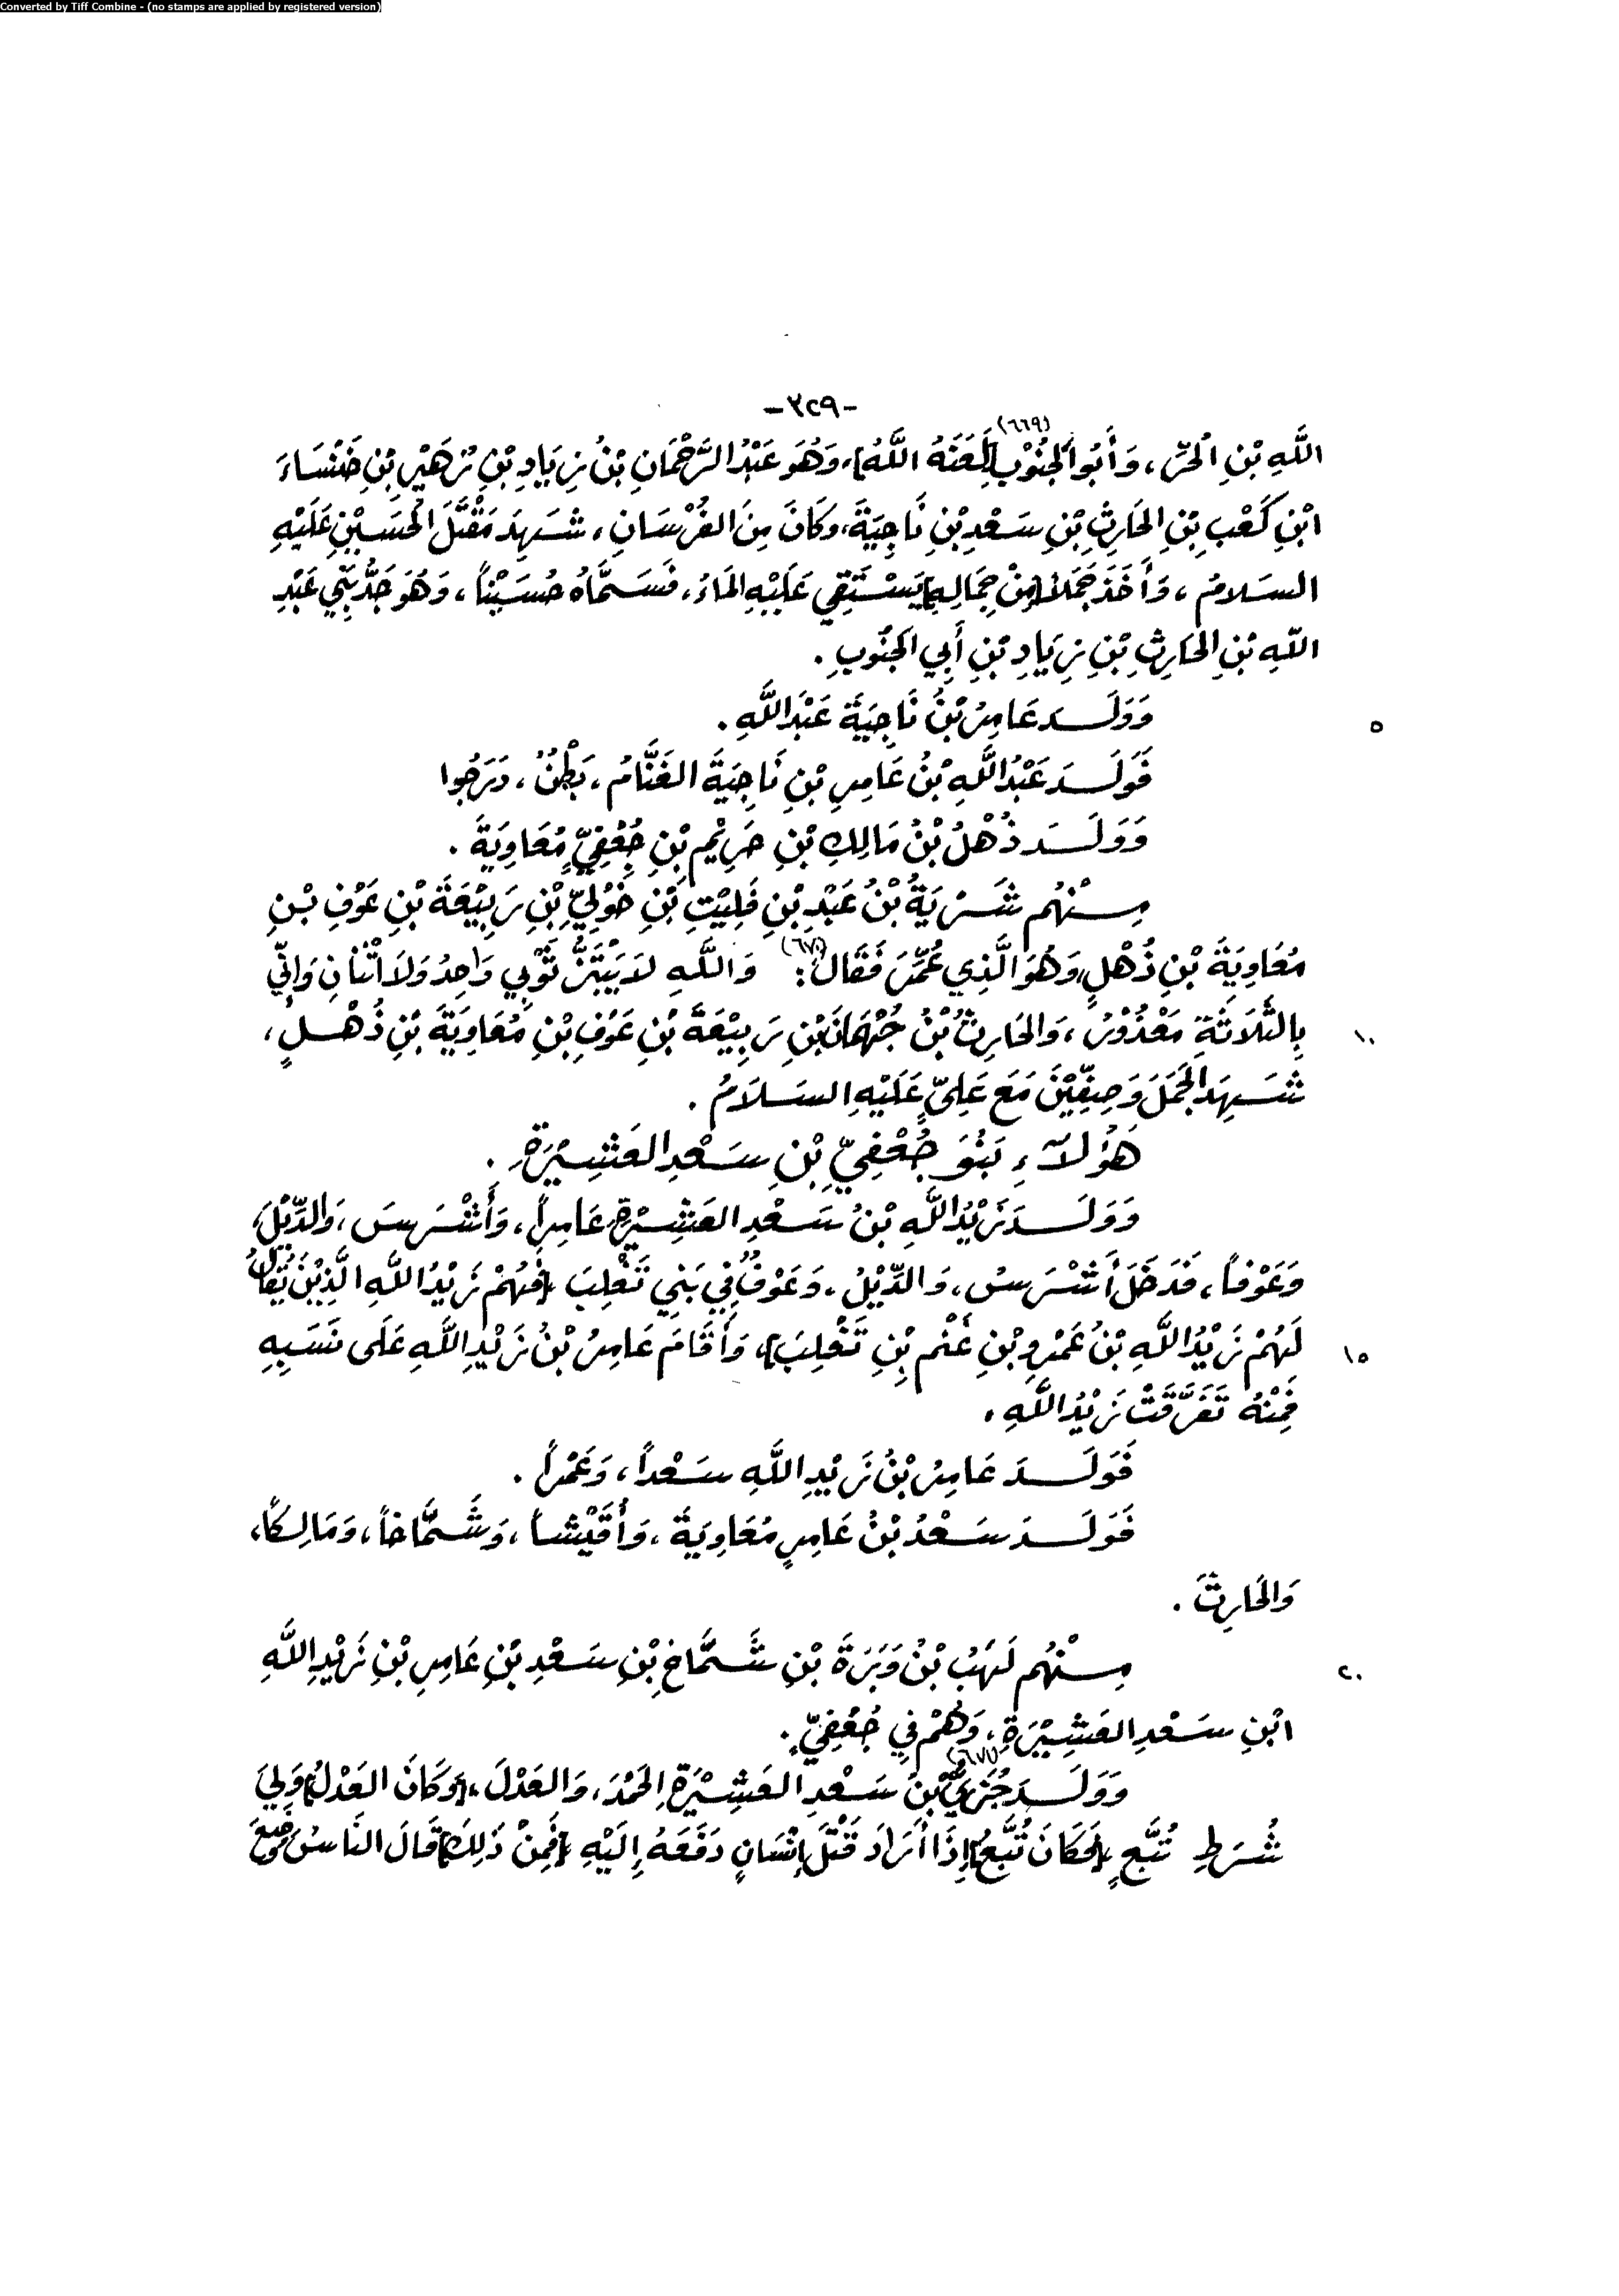 Converted by Tiff Combine - (no stamps are applied by registered version)
-٣٢٩-
اللَّهِ بْنِ الْحُرِّ، وَأَبُو الْجَنُوْبِ (٦٦٩) [لَعَنَهُ اللَّهُ]، وَهُوَ عَبْدُ الرَّحْمَانِ بْنُ زِيَادِ بْنِ زُهَيْرِ بْنِ خَنْسَاءَ
ابْنِ كَعْبِ بْنِ الحَارِثِ بْنِ سَعْدِ بْنِ نَاجِيَةَ، وَكَانَ مِنَ الفُرْسَانِ، شَهِدَ مَقْتَلَ الحُسَيْنِ عَلَيْهِ
السَلامُ، وَأَخَذَ جَمَلاً [مِنْ جِمَالِهِ] يَسْتَقِي عَلَيْهِ المَاءَ، فَسَمَّاهُ حُسَيْناً، وَهُوَ جَدُّ بَنِي عَبْدِ
اللَّهِ بْنِ الحَارِثِ بْنِ زِيَادِ بْنِ أَبِي الجَنُوبِ.
٥ وَوَلَدَ عَامِرُ بْنُ نَاجِيَةَ عَبْدَ اللَّهِ.
فَوَلَدَ عَبْدُ اللَّهِ بْنُ عَامِرِ بْنِ نَاجِيَةَ الغَنَّامُ، بَطْنٌ، دَرَجُوا
وَوَلَدَ ذُهْلُ بْنُ مَالِكِ بْنِ حَرِيْمِ بْنِ جُعْفِيٍّ مُعَاوِيَةَ.
مِنْهُم شَرْيَةُ بْنُ عَبْدِ بْنِ قَلِيْتِ بْنِ خَوْلِيِّ بْنِ رَبِيْعَةَ بْنِ عَوْفِ بْنِ
مُعَاوِيَةَ بْنِ ذُهْلٍ، وَهُوَ الَّذِي عُمِّرَ فَقَالَ (٦٧٠): وَاللَّهِ لاَ يَبْتَزُّ ثَوْبِي وَاحِدٌ وَلاَ اثْنَانِ وَإِنِّي
١٠ بِالثَّلاَثَةِ مَعْذُوْرٌ، وَالحَارِثُ بْنُ جُهْمَانَ بْنِ رَبِيْعَةَ بْنِ عَوْفِ بْنِ مُعَاوِيَةَ بْنِ ذُهْلٍ،
شَهِدَ الجَمَلَ وَصِفِّيْنَ مَعَ عَلِيٍّ عَلَيْهِ السَلَامُ.
هَؤُلآءِ بَنُوَ جُعْفِيِّ بْنِ سَعْدِ العَشِيْرَةِ.
وَوَلَدَ زَيْدُ اللَّهِ بْنُ سَعْدِ العَشِيْرَةِ عَامِراً، وَأَشْرَسَ، وَالدِّيْلَ،
وَعَوْفاً، فَدَخَلَ أَشْرَسُ، وَالدِّيْلُ، وَعَوْفٌ فِي بَنِي تَغْلِبَ [فَهُمْ زَيْدُ اللَّهِ الَّذِيْنَ يُقَالُ
١٥ لَهُمْ زَيْدُ اللَّهِ بْنُ عَمْرِو بْنِ غَنْمِ بْنِ تَغْلِبَ]، وَأَقَامَ عَامِرُ بْنُ زَيْدِ اللَّهِ عَلَى نَسَبِهِ
فَمِنْهُ تَفَرَّقَتْ زَيْدُ اللَّهِ.
فَوَلَدَ عَامِرُ بْنُ زَيْدِ اللَّهِ سَعْداً، وَعَمْراً.
فَوَلَدَ سَعْدُ بْنُ عَامِرٍ مُعَاوِيَةَ، وَأُقَيْشاً، وَشَمَّاخاً، وَمَالِكاً،
وَالحَارِثَ.
٢٠ مِنْهُم لَهَبُ بْنُ وَبَرَةَ بْنِ شَمَّاخِ بْنِ سَعْدِ بْنِ عَامِرِ بْنِ زَيْدِ اللَّهِ
ابْنِ سَعْدِ العَشِيْرَةِ، وَهُمْ فِي جُعْفِيٍّ.
وَوَلَدَ جُزَيُّ (٦٧١) بْنُ سَعْدِ العَشِيْرَةِ الحَمْدَ، وَالعَدْلَ، [وَكَانَ العَدْلُ] وَلِيَ
شُرَطِ تُبَّعٍ [فَكَانَ تُبَّعٌ] إِذَا أَرَادَ قَتْلَ إِنْسَانٍ دَفَعَهُ إِلَيْهِ [فَمِنْ ذَلِكَ] قَالَ النَاسُ وُضِعَ